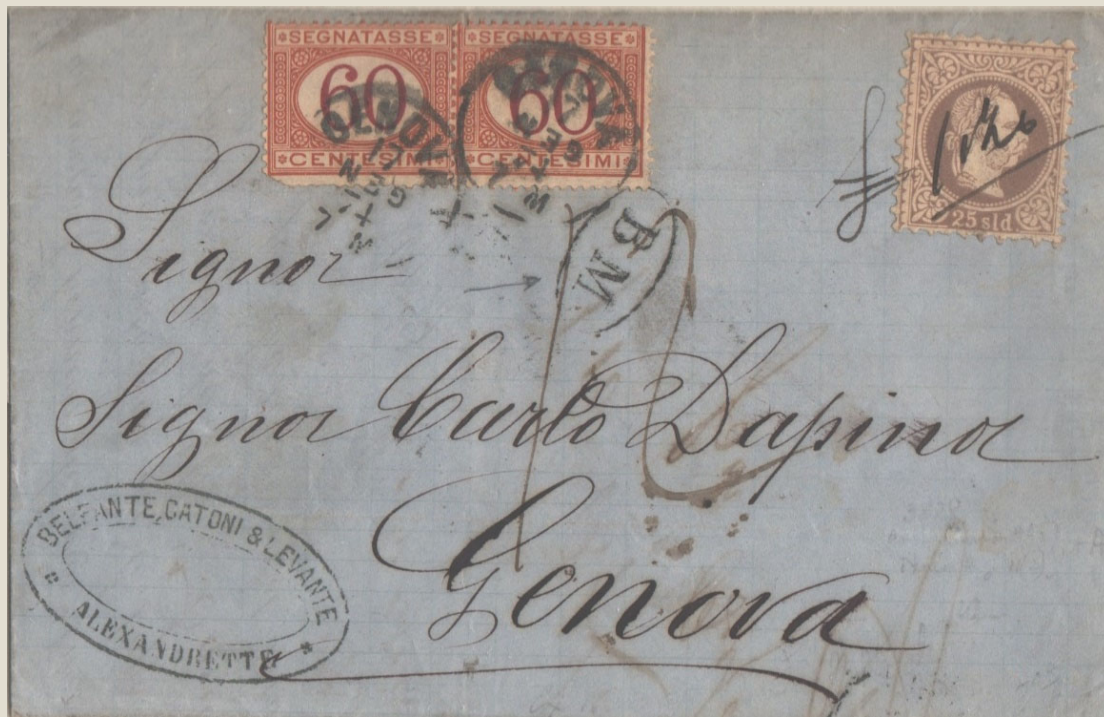 SEGNATASSE SEGNATASSE
60 60
CENTESIMI CENTESIMI
GENOVA
GENOVA
25 sld
BM
Signor
Signor Carlo Dapino
Genova
BELFANTE, CATONI & LEVANTE
ALEXANDRETTE